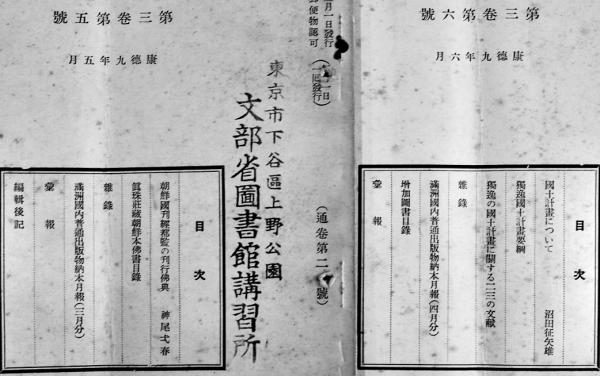 號六第卷三第
月六年九德康
目次
國土計畫について 沼田征矢雄
獨逸國土計畫要綱
獨逸の國土計畫に關する二三の文献
雜錄
滿洲國內普通出版物納本月報(四月分)
增加圖書目錄
彙報
月一日發行
郵便物認可
一日
(一回發行)
(通卷第二 號)
東京市下谷區上野公園
文部省圖書館講習所
號五第卷三第
月五年九德康
目次
朝鮮國刊經都監の刊行佛典 神尾弌春
眞珠莊藏朝鮮本佛書目錄
雜錄
滿洲國內普通出版物納本月報(三月分)
彙報
編輯後記